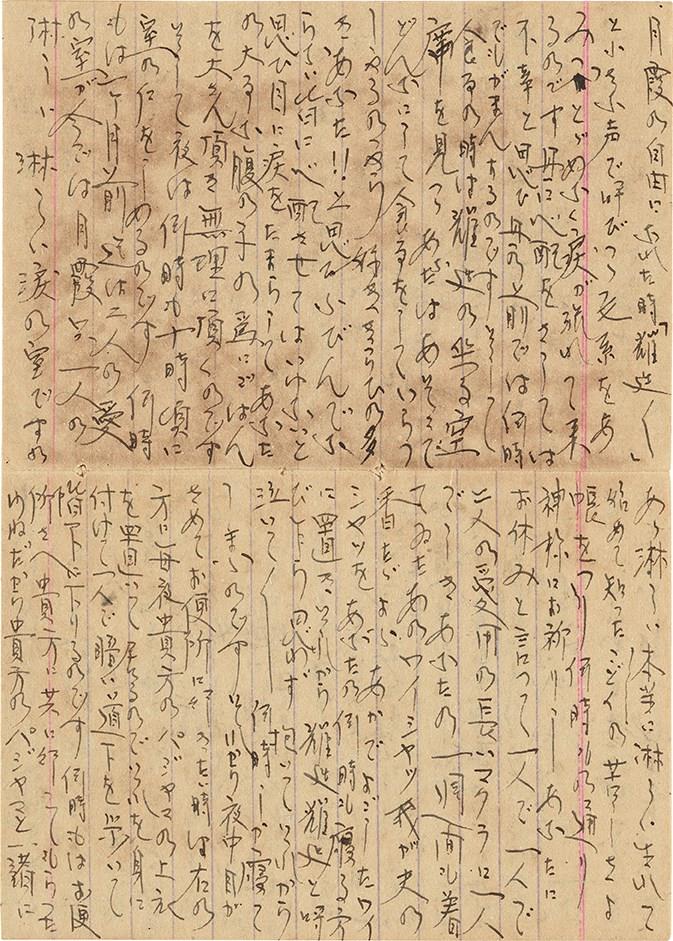 月霞の自由になれた時「耀廷〱」
と小さな声で呼びつつ死系をあ
みつとゞめなく涙が流れて来
るのです 母に心配をさしては
不幸と思ひ母の前では何時
でもがまんするのですそして
食事の時は耀廷の坐る空
席を見つゝあなたはあそこで
どんなにして食事をしていらう
しゃるのかしら 好ききらひの多
きあなた!!と思ひふびんでな
らない皆に心配させてはいけないと
思ひ目に涙をたまらしてあなた
の大事な腹の子の為にごはん
を大さん頂き無理に頂くのです
そして夜は何時も十時頃に
室の灯をしめるのです 何時
もは一ケ月前迄は二人の愛
の室が今では月霞只一人の
淋しい淋しい涙の室ですの
あゝ淋しい本当に淋しい生れて
始めて知ったこの苦しさよ
帳をつり何時もの通り
神様にお祈りしあなたに
お休みと言って一人で一人で
二人の愛用の長いマクラに一人
でしきあなたの一週間も着
てゐたあのワイシャツ我が夫の
香たゞよふ あかでよごしたワイ
シャツをあなたの何時も寝る方
に置きそれから耀廷耀廷と呼
びしらう思わず抱いてそれから
泣いて〱何時しか寝て
しまふのですそれから夜中目が
さめてお便所に行きたい時は右の
方に毎夜貴方のパジャマの上衣
を置いて居るのでそれを身に
付けて一人で暗い道下を歩いて
階下に下りるのです何時もはお便
所さへ貴方に共に行ってもらった
ゆねだから貴方のパジャマと一諸に